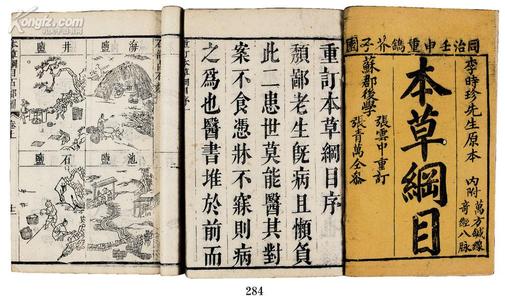 同治壬申重鐫芥子園
李時珍先生原本
內附
萬方鍼線
奇經八脉
本草綱目
蘇郡後學
張雲中重訂
張青萬全參
重訂本草綱目序
頽鄙老生旣病且懶負
此二患世莫能醫其對
案不食憑牀不寐則病
之爲也醫書堆於前而
重訂本草綱目序
海鹽
井鹽
石鹽
池鹽
本草綱目
284